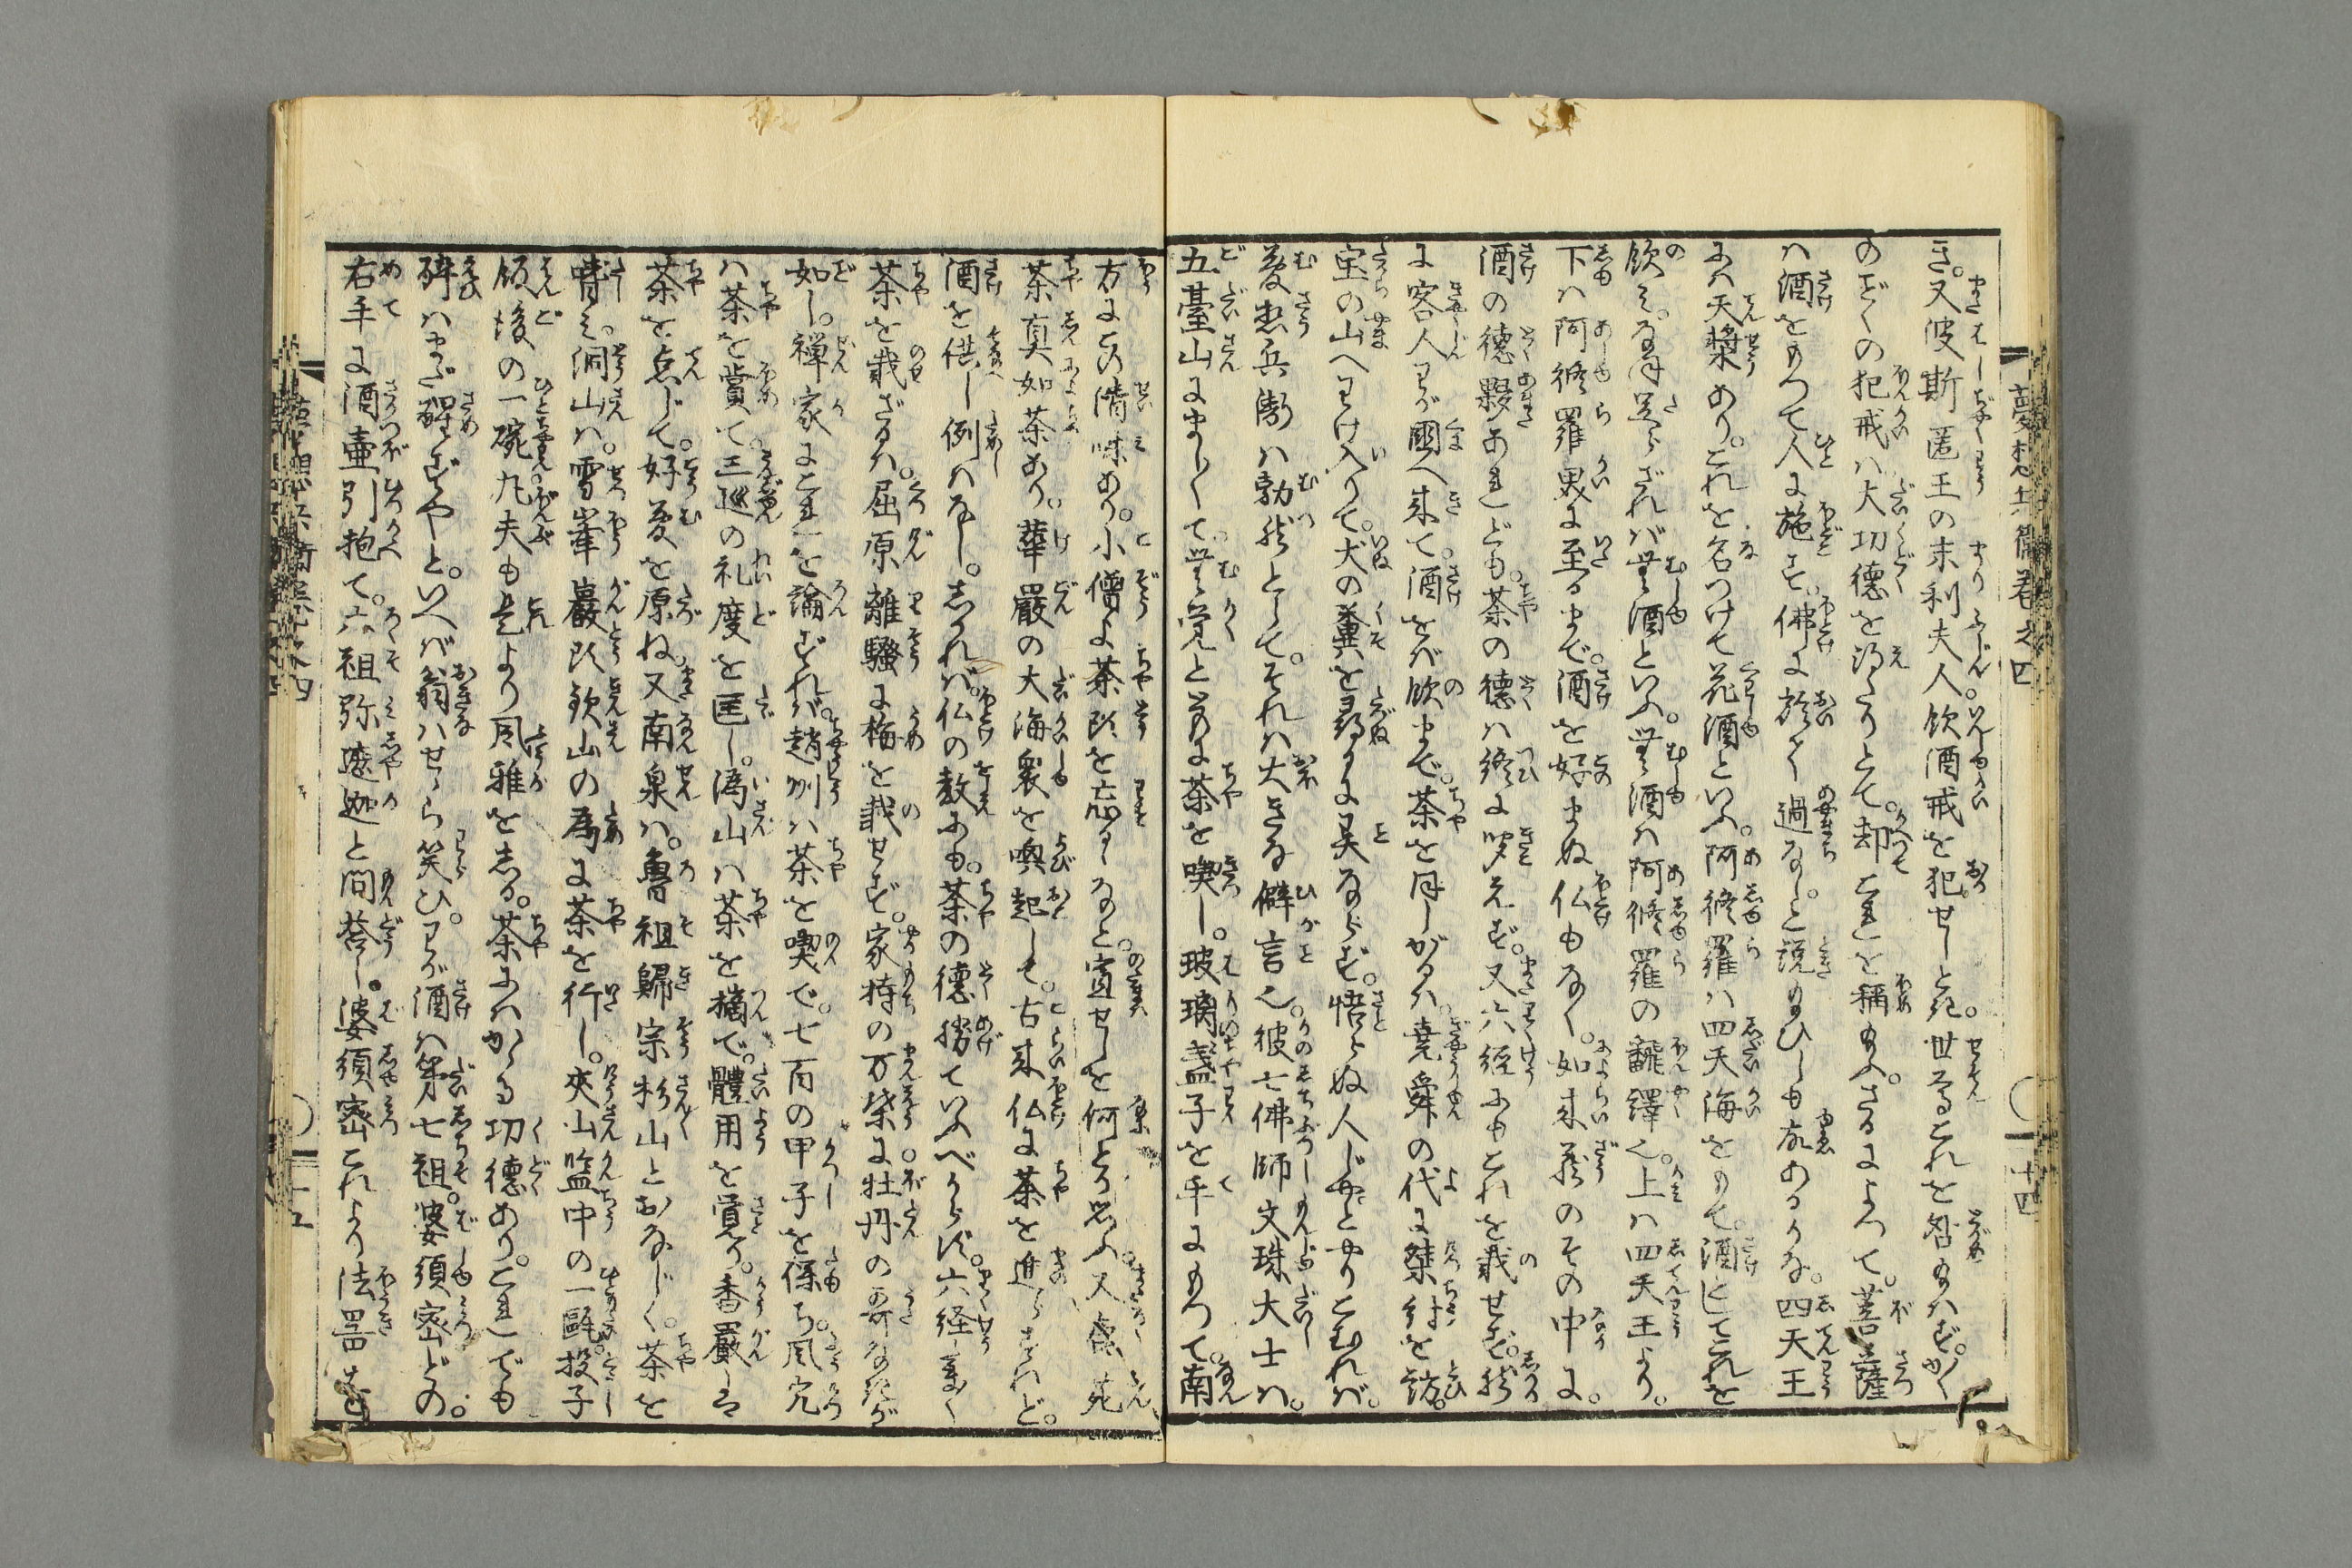 夢想兵衛巻之四
き。又波斯匿王の末利夫人。飲酒戒を犯せしとき。世尊これを咎給はず。かく
のごとくの犯戒は大功徳を得たりとて。却これを称給ふ。さるによつて。菩薩
は酒をもつて人に施せ。佛に於て過なし。と説給ひしも故あるかな。四天王
には天漿あり。これを名つけて花酒といふ。阿脩羅は四天海をもて。酒としてこれを
飲み。なほ足らざれば無酒といふ。無酒は阿脩羅の飜繹也。上は四天王より。
下は阿脩羅界に至るまで。酒を好まぬ仏もなく。如来蔵のその中に。
酒の徳夥あれども。茶の徳は終に聞えず。又六経にもこれを載せず。然る
に客人わが國へ来て。酒をば飲まで。茶を得しがるは。堯舜の代に桀紂を訪。
宝の山へわけ入りて。犬の糞を尋るに異ならず。悟らぬ人じやとやりこむれば。
夢想兵衛は勃然として。それは大きな僻言也。彼七佛師文珠大士は。
五臺山にまし〳〵て。無覚と共に茶を喫し。玻璃盞子を手にもつて。南
方にこの清味あり。小僧よ茶所を忘るゝなと。宣せしを何とか思ふ。又
茶真如茶あり。華嚴の大海衆を喚起して。古来仏に茶を進らすれど。
酒を供し例はなし。しかれば。仏の教にも。茶の徳勝ていふべからず。六経
茶を載ざるは。屈原離騒に梅を載せず。家持の万葉に牡丹の哥なきが
如し。禅家にこれを論ずれば。趙州は茶を喫で。七百の甲子を保ち。風穴
は茶を賞て。三巡の礼度を匡し。潙山は茶を摘で。體用を覚る。香嚴は
茶を点じて。好夢を原ね。又南泉は。魯祖歸宗杉山とおなじく。茶を
嗜み。洞山は。雪峯巖頭欽山の為に茶を行し。夾山盌中の一甌。投子
飯後の一碗凡夫も是より風雅をしる。茶にはかゝる功徳あり。これでも
酔はまだ醒ずやと。いへば翁はせゝら笑ひ。わが酒は第七祖。婆須密どの。
右手に酒壷引抱て。六祖弥遮迦と問荅し。婆須密これより法器を